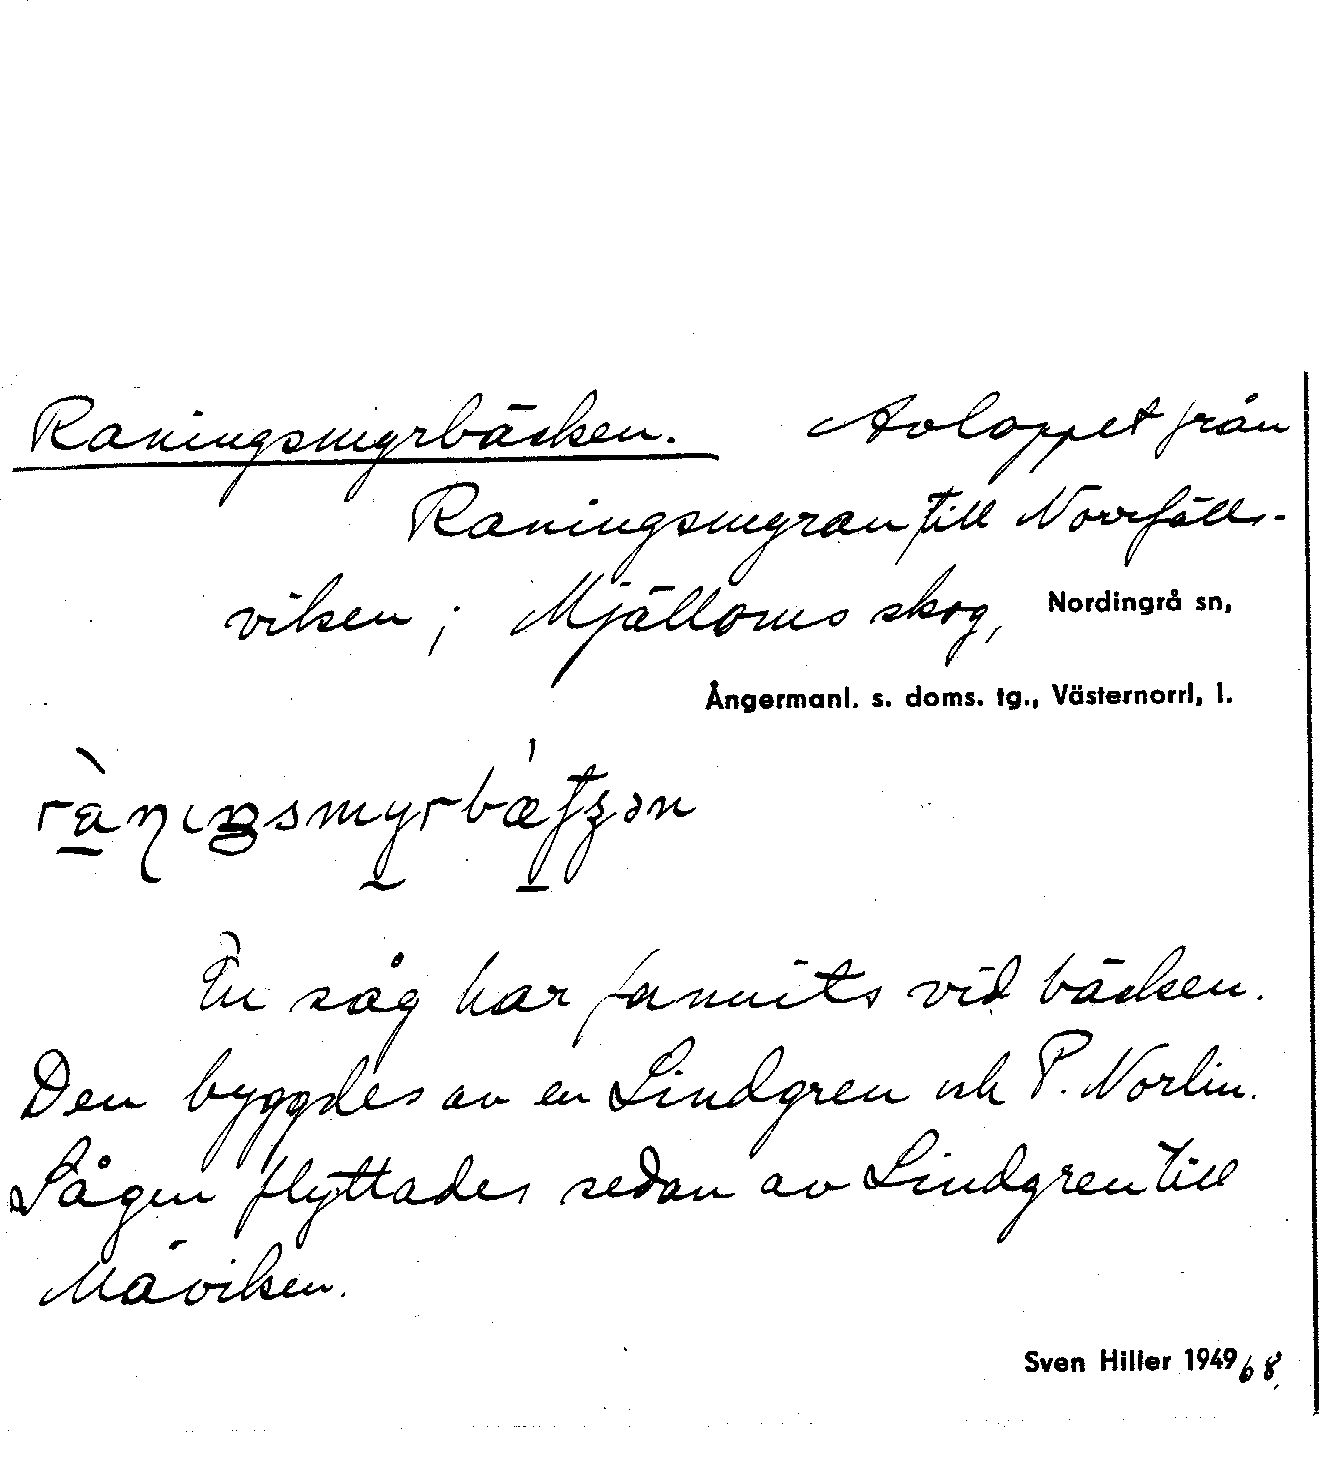 Raningsmyrbäcken. Avloppet från
Raningsmyran till Norrfälls-
viken; Mjälloms skog, Nordingrå sn,
Ångermanl. s. doms. tg., Västernorrl, l.
En såg har funnits vid bäcken.
Den byggdes av en Lindgren och P. Norlin.
Sågen flyttades sedan av Lindgren till
Måviken.
Sven Hiller 1949 68.